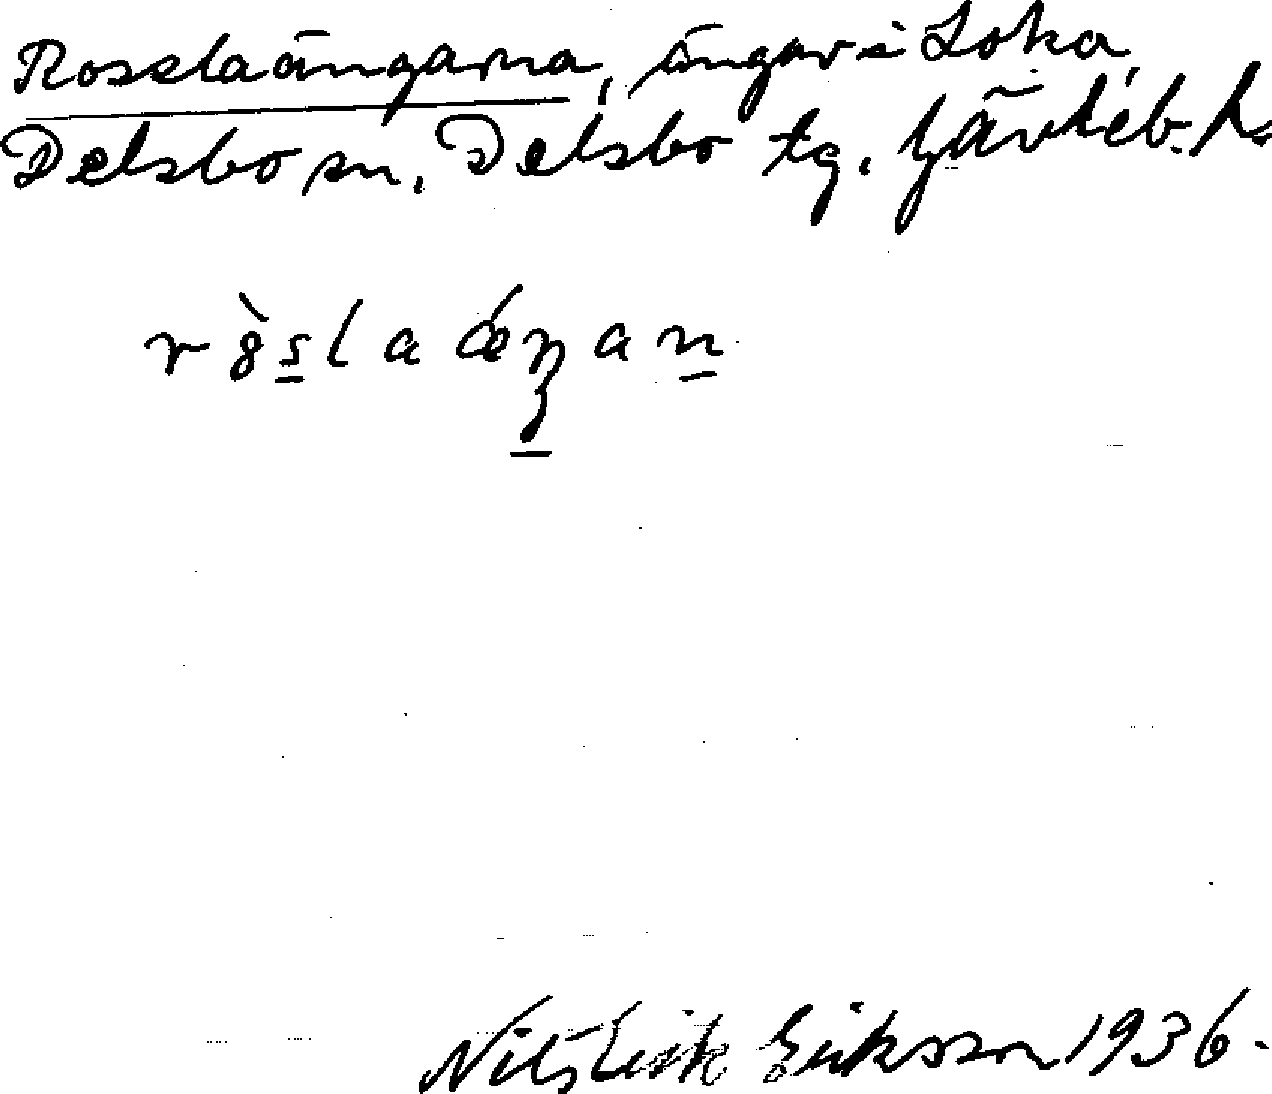 Rosslaängarna, ängar i Loka,
Delsbo sn, Delsbo tg. Gävleb. l.
Nils Erik Eriksson 1936.